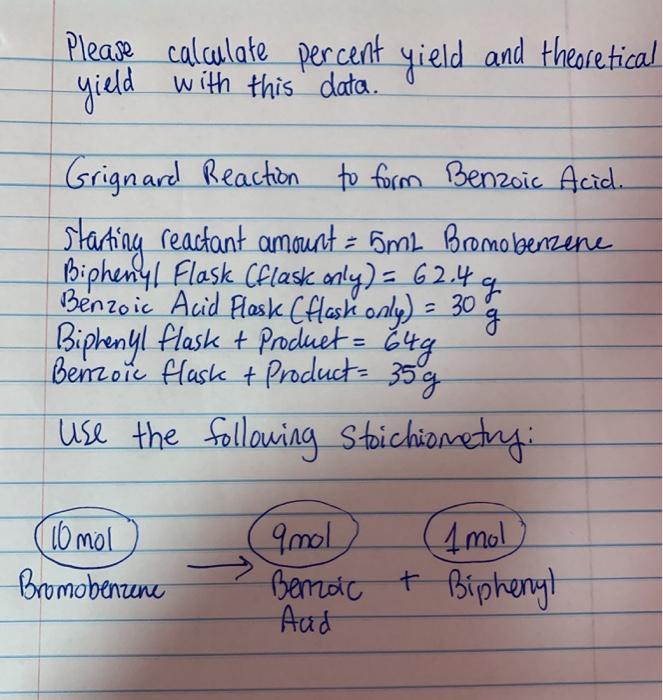 Please calculate percent yield and theoretical
yield with this data.
Grignard Reaction to form Benzoic Acid.
Starting reactant amount = 5mL Bromobenzene
Biphenyl Flask (flask only) = 62.4 g
Benzoic Acid Flask (flask only) = 30 g
Biphenyl flask + Product = 64g
Benzoic flask + Product = 35g
Use the following Stoichiometry:
10 mol 9 mol 1 mol
Bromobenzene → Benzoic + Biphenyl
Acid